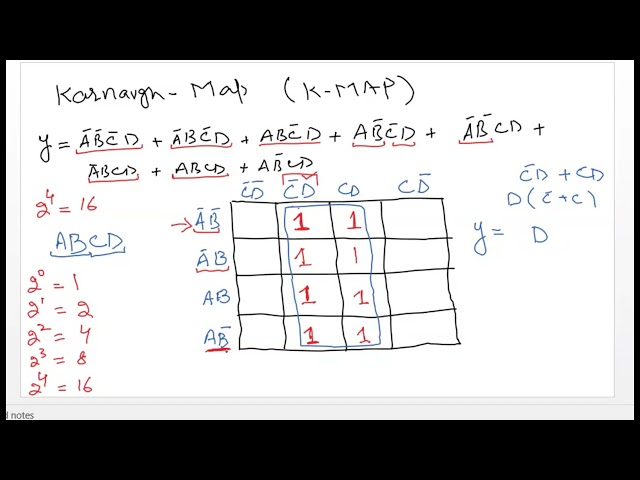 Karnavgh - Map (K-MAP)
y = A̅B̅C̅D + A̅BC̅D + ABC̅D + AB̅C̅D + A̅B̅CD +
A̅BCD + ABCD + AB̅CD
C̅D + CD
D(C̅+C)
y = D
2⁴ = 16
ABCD
2⁰ = 1
2¹ = 2
2² = 4
2³ = 8
2⁴ = 16
C̅D̅ C̅D CD CD̅
A̅B̅ 1 1
A̅B 1 1
AB 1 1
AB̅ 1 1
d notes